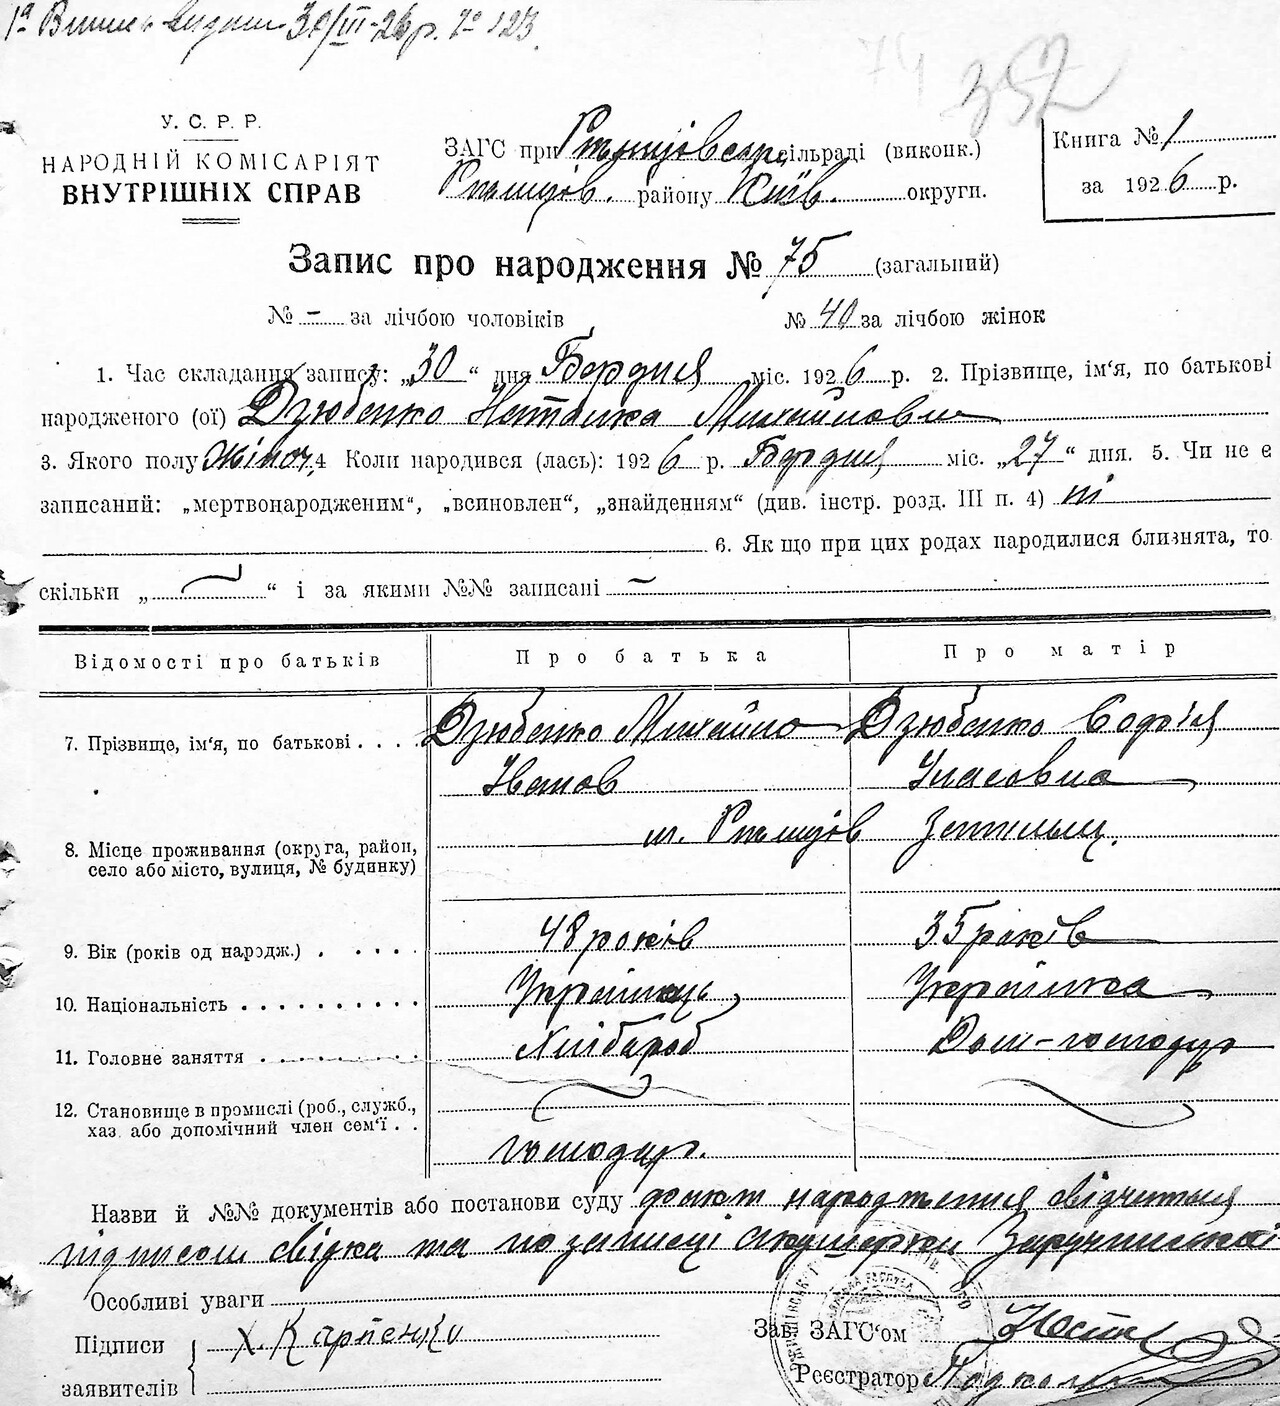 1ª Випис видано 30/III-26 р. № 123.
352
У. С. Р. Р.
НАРОДНІЙ КОМІСАРІЯТ
ВНУТРІШНІХ СПРАВ
ЗАГС при Ржищівськ. сільраді (виконк.)
Ржищів. району Київ. округи.
Книга № 1
за 1926 р.
Запис про народження № 75 (загальний)
№ - за лічбою чоловіків № 40 за лічбою жінок
1. Час складання запису: „30“ дня Бердня міс. 1926 р. 2. Прізвище, ім‘я, по батькові
народженого (ої) Дзюбенко Наталка Михайловн
3. Якого полу жіноч. 4 Коли народився (лась): 1926 р. Бердня міс. „27“ дня. 5. Чи не є
записаний: „мертвонародженим“, „всиновлен“, „знайденням“ (див. інстр. розд. III п. 4) ні
6. Як що при цих родах народилися близнята, то
скільки „ — “ і за якими №№ записані —
Відомості про батьків Про батька Про матір
7. Прізвище, ім‘я, по батькові . . . . Дзюбенко Михайло Дзюбенко Софія
Іванов Власовна
м. Ржищів
8. Місце проживання (округа, район,
село або місто, вулиця, № будинку)
9. Вік (років од народж.) . . . . . 48 років 35 років
10. Національність . . . . . . . . . . Українець Українка
11. Головне заняття . . . . . . . . . Хлібороб Дом-господар
12. Становище в промислі (роб., служб.,
хаз. або допомічний член сем‘ї . .
господар.
Назви й №№ документів або постанови суду факт народження свідчиться
підписом свідка та по записці акушерки
Особливі уваги
Підписи Х. Карпенко
заявителів
Зав. ЗАГС‘ом
Реєстратор